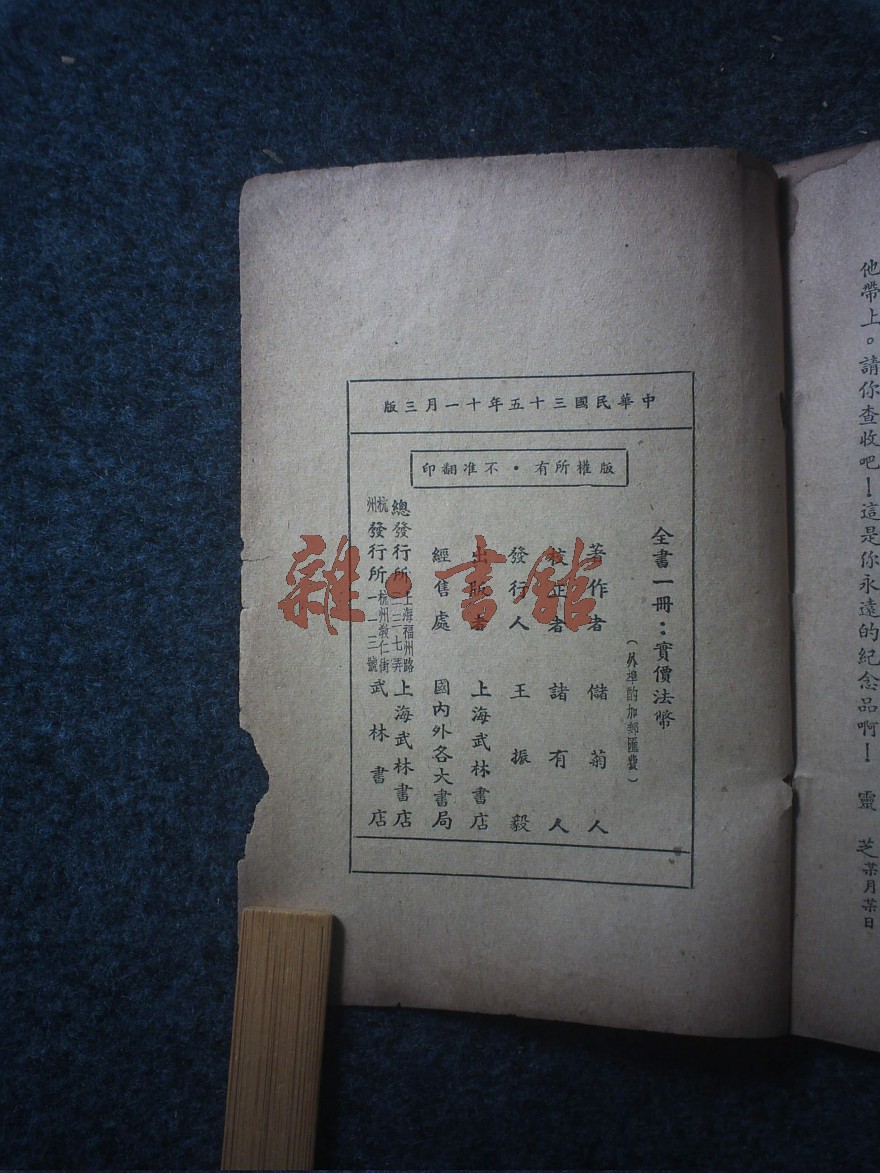 他帶上。請你查收吧！這是你永遠的紀念品啊！　靈　芝某月某日
中華民國三十五年十一月三版
版權所有・不准翻印
全書一冊：實價法幣
（外埠酌加郵匯費）
著作者　儲菊人
校正者　諸有人
發行人　王振毅
出版者　上海武林書店
經售處　國內外各大書局
總發行所　上海福州路　三七弄　上海武林書店
杭州發行所　杭州敎仁街一一三號　武林書店
雜・書館